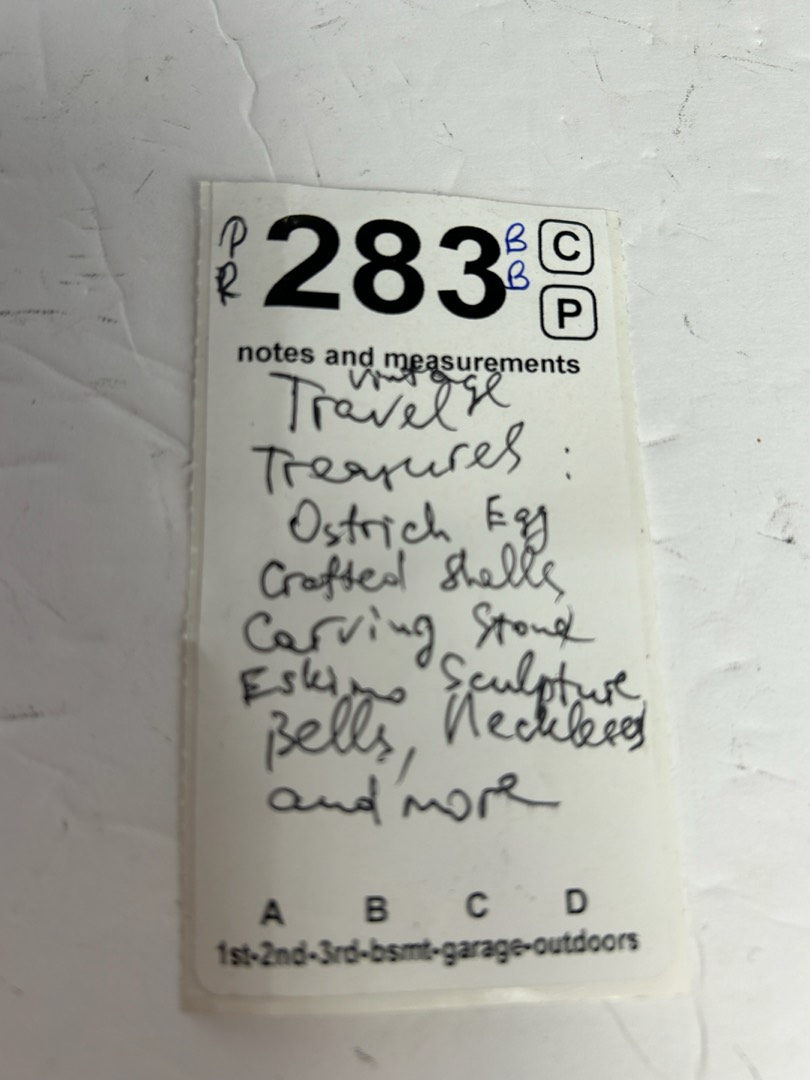 P 283 B C
R B P
notes and measurements
vintage
Travel
Treasures :
Ostrich Egg
Crafted Shells,
Carving Stone
Eskimo Sculpture
Bells, Neckless
and more
A B C D
1st-2nd-3rd-bsmt-garage-outdoors